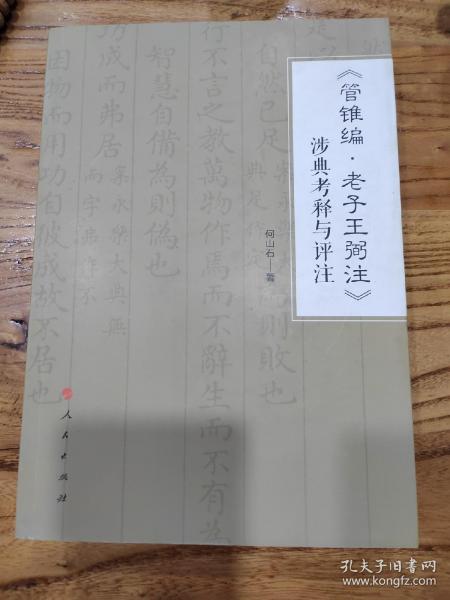 《管锥编·老子王弼注》
涉典考释与评注
何山石 著
人民出版社
自然已足
則敗也
行不言之教萬物作焉而不辭生而不有為
智慧自備為則偽也
功成而弗居
案永樂大典無
因物而用功自彼成故不居也
孔夫子旧书网
www.kongfz.com